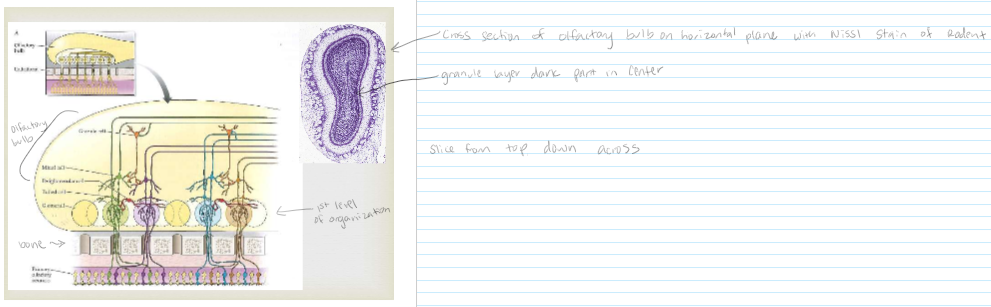 A
Olfactory
bulb
Olfactory
bulb
Granule cell
Mitral cell
Periglomerular cell
Tufted cell
Glomeruli
1st level
of organization
bone
Primary
olfactory
neurons
Cross section of olfactory bulb on horizontal plane with Nissl Stain of Rodent
granule layer dark part in center
slice from top down across